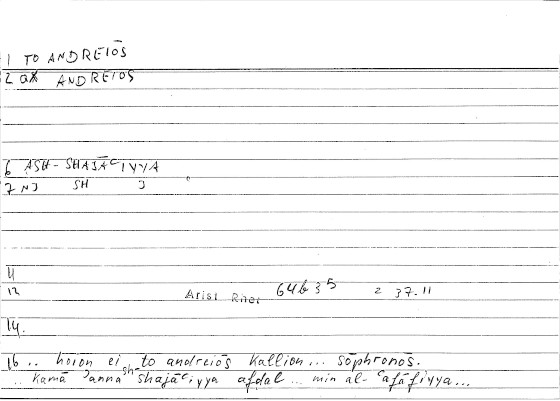 1 TO ANDREIŌS
2 ANDREIOS
6 ASH-SHAJĀʿIYYA
7 NJ SH J
11
12 Arist Rhet 64b35 = 37.11
14.
16 .. hoion ei to andreiōs kallion... sōphronōs.
.. kamā ʾanna sh-shajāʿiyya afdal ... min al-ʿafāfiyya...